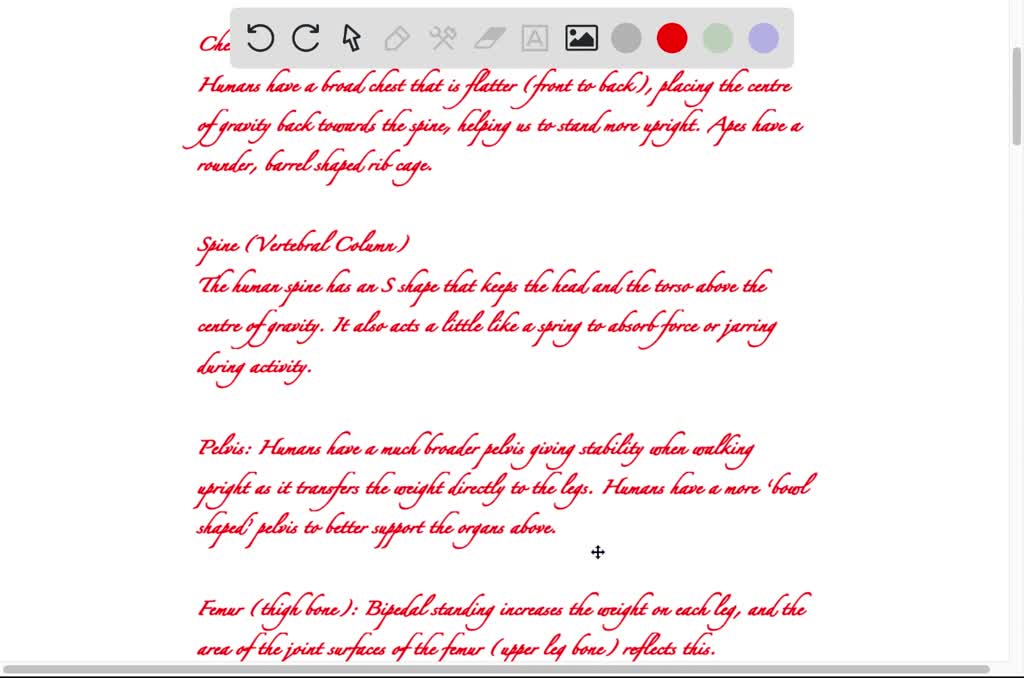 Che
Humans have a broad chest that is flatter (front to back), placing the centre
of gravity back towards the spine, helping us to stand more upright. Apes have a
rounder, barrel shaped rib cage.
Spine (Vertebral Column)
The human spine has an S shape that keeps the head and the torso above the
centre of gravity. It also acts a little like a spring to absorb force or jarring
during activity.
Pelvis: Humans have a much broader pelvis giving stability when walking
upright as it transfers the weight directly to the legs. Humans have a more ‘bowl
shaped’ pelvis to better support the organs above.
Femur (thigh bone): Bipedal standing increases the weight on each leg, and the
area of the joint surfaces of the femur (upper leg bone) reflects this.